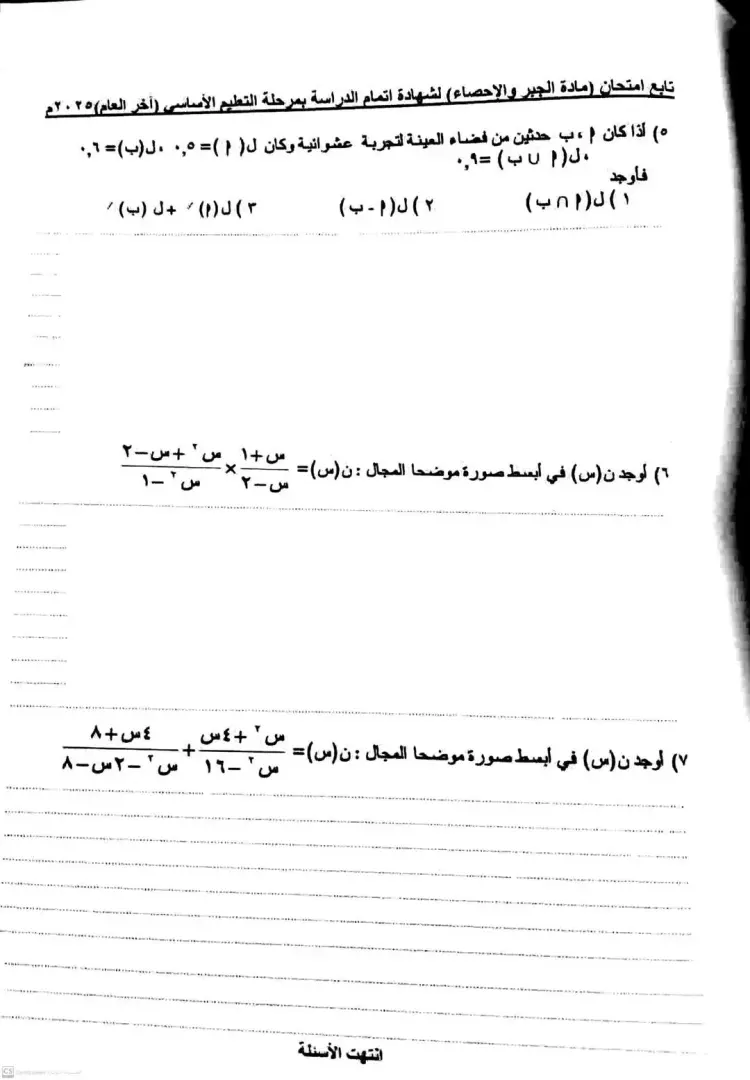 تابع امتحان (مادة الجبر والإحصاء) لشهادة اتمام الدراسة بمرحلة التعليم الأساسي (أخر العام) ٢٠٢٥م
٥) أذا كان ٢ ، ب حدثين من فضاء العينة لتجربة عشوائية وكان ل( ٢ )= ٠,٥ ، ل(ب)= ٠,٦
، ل(٢ ∪ ب) = ٠,٩
فأوجد
١ ) ل(٢ ∩ ب) ٢ ) ل(٢ - ب) ٣ ) ل(٢)ˊ + ل (ب)ˊ
٦) أوجد ن(س) في أبسط صورة موضحا المجال : ن(س)= (س+١)/(س-٢) × (س٢ +س-٢)/(س٢ -١)
٧) أوجد ن(س) في أبسط صورة موضحا المجال : ن(س)= (س٢ +٤س)/(س٢ -١٦) + (٤س+٨)/(س٢ -٢س-٨)
انتهت الأسئلة
CS CamScanner